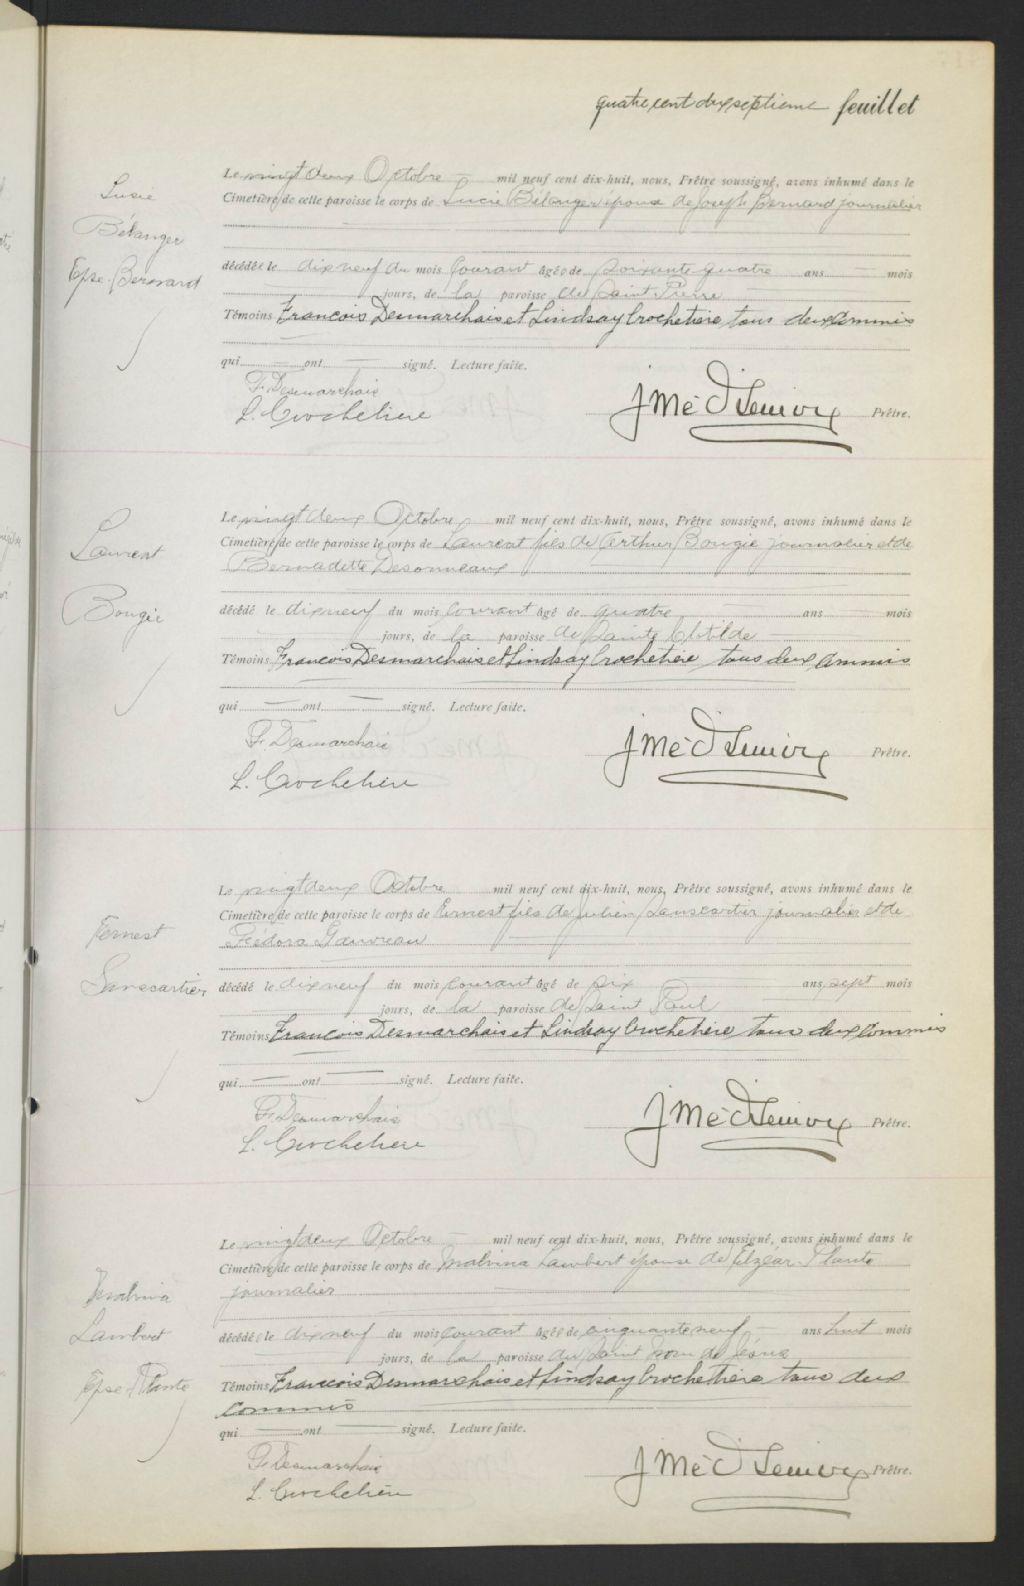 quatre cent dix septieme feuillet
Lucie
Bélanger
Epse. Bernard
Le vingt deux Octobre mil neuf cent dix-huit, nous, Prêtre soussigné, avons inhumé dans le
Cimetière de cette paroisse le corps de Lucie Bélanger épouse de Joseph Bernard journalier
décédée le dixneuf du mois courant âgée de soixante quatre ans mois
jours, de la paroisse de Saint Pierre
Témoins Francois Desmarchais et Lindsay Crochetiere tous deux commis
qui ont signé. Lecture faite.
F. Desmarchais
L. Crochetiere
Prêtre.
Laurent
Bougie
Le vingt deux Octobre mil neuf cent dix-huit, nous, Prêtre soussigné, avons inhumé dans le
Cimetière de cette paroisse le corps de Laurent fils de Arthur Bougie journalier et de
Bernadette
décédé le dixneuf du mois courant âgé de quatre ans mois
jours, de la paroisse de Sainte Clotilde
Témoins Francois Desmarchais et Lindsay Crochetiere tous deux commis
qui ont signé. Lecture faite.
F. Desmarchais
L. Crochetiere
Prêtre.
Fernest
Sanscartier
Le vingt deux Octobre mil neuf cent dix-huit, nous, Prêtre soussigné, avons inhumé dans le
Cimetière de cette paroisse le corps de Ernest fils de Julien Sanscartier journalier et de
Gauvreau
décédé le dixneuf du mois courant âgé de six ans sept mois
jours, de la paroisse de Saint Paul
Témoins Francois Desmarchais et Lindsay Crochetiere tous deux commis
qui ont signé. Lecture faite.
F. Desmarchais
L. Crochetiere
Prêtre.
Malvina
Lambert
Epse. Plante
Le vingt deux Octobre mil neuf cent dix-huit, nous, Prêtre soussigné, avons inhumé dans le
Cimetière de cette paroisse le corps de Malvina Lambert épouse de Elzéar Plante
journalier
décédée le dixneuf du mois courant âgée de cinquante neuf ans huit mois
jours, de la paroisse du Saint Nom de Jésus
Témoins Francois Desmarchais et Lindsay Crochetiere tous deux
commis
qui ont signé. Lecture faite.
F. Desmarchais
L. Crochetiere
Prêtre.